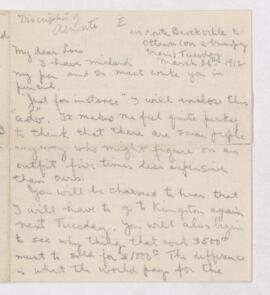 Description of
Asnonte
E
en route Brockville to
Ottawa (on a bumpy
train) Tuesday
March 26th 1912
My dear Lois
I have mislaid
my pen and so must write you in
pencil.
"Just for instance" I will enclose this
adv. It makes me feel quite perky
to think that there are some people
anyway who might figure on an
outfit five times less expensive
than ours.
You will be charmed to hear that
I will have to go to Kingston again
next Tuesday. You will also begin
to see why things that cost $500
must be sold for $1000. The difference
is what the world pays for the